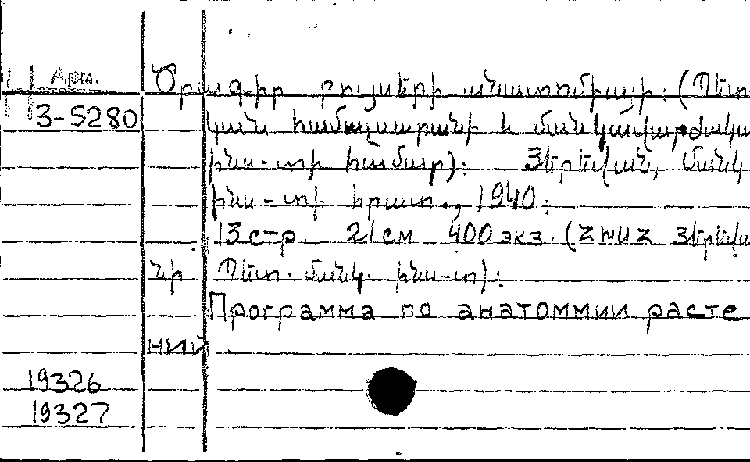 Арм.
Ծրագիր բույսերի անատոմիայի: (Պետա
3-5280
կան համալսարանի և մանկավարժակա
ինս-տի համար): Յերեվան, Մանկ
ինս-տի հրատ., 1940:
13 стр 21 см 400 экз. (ՀԽՍՀ Յերեվա
նի Պետ. մանկ. ինս-տ):
Программа по анатоммии расте
ний
19326
19327